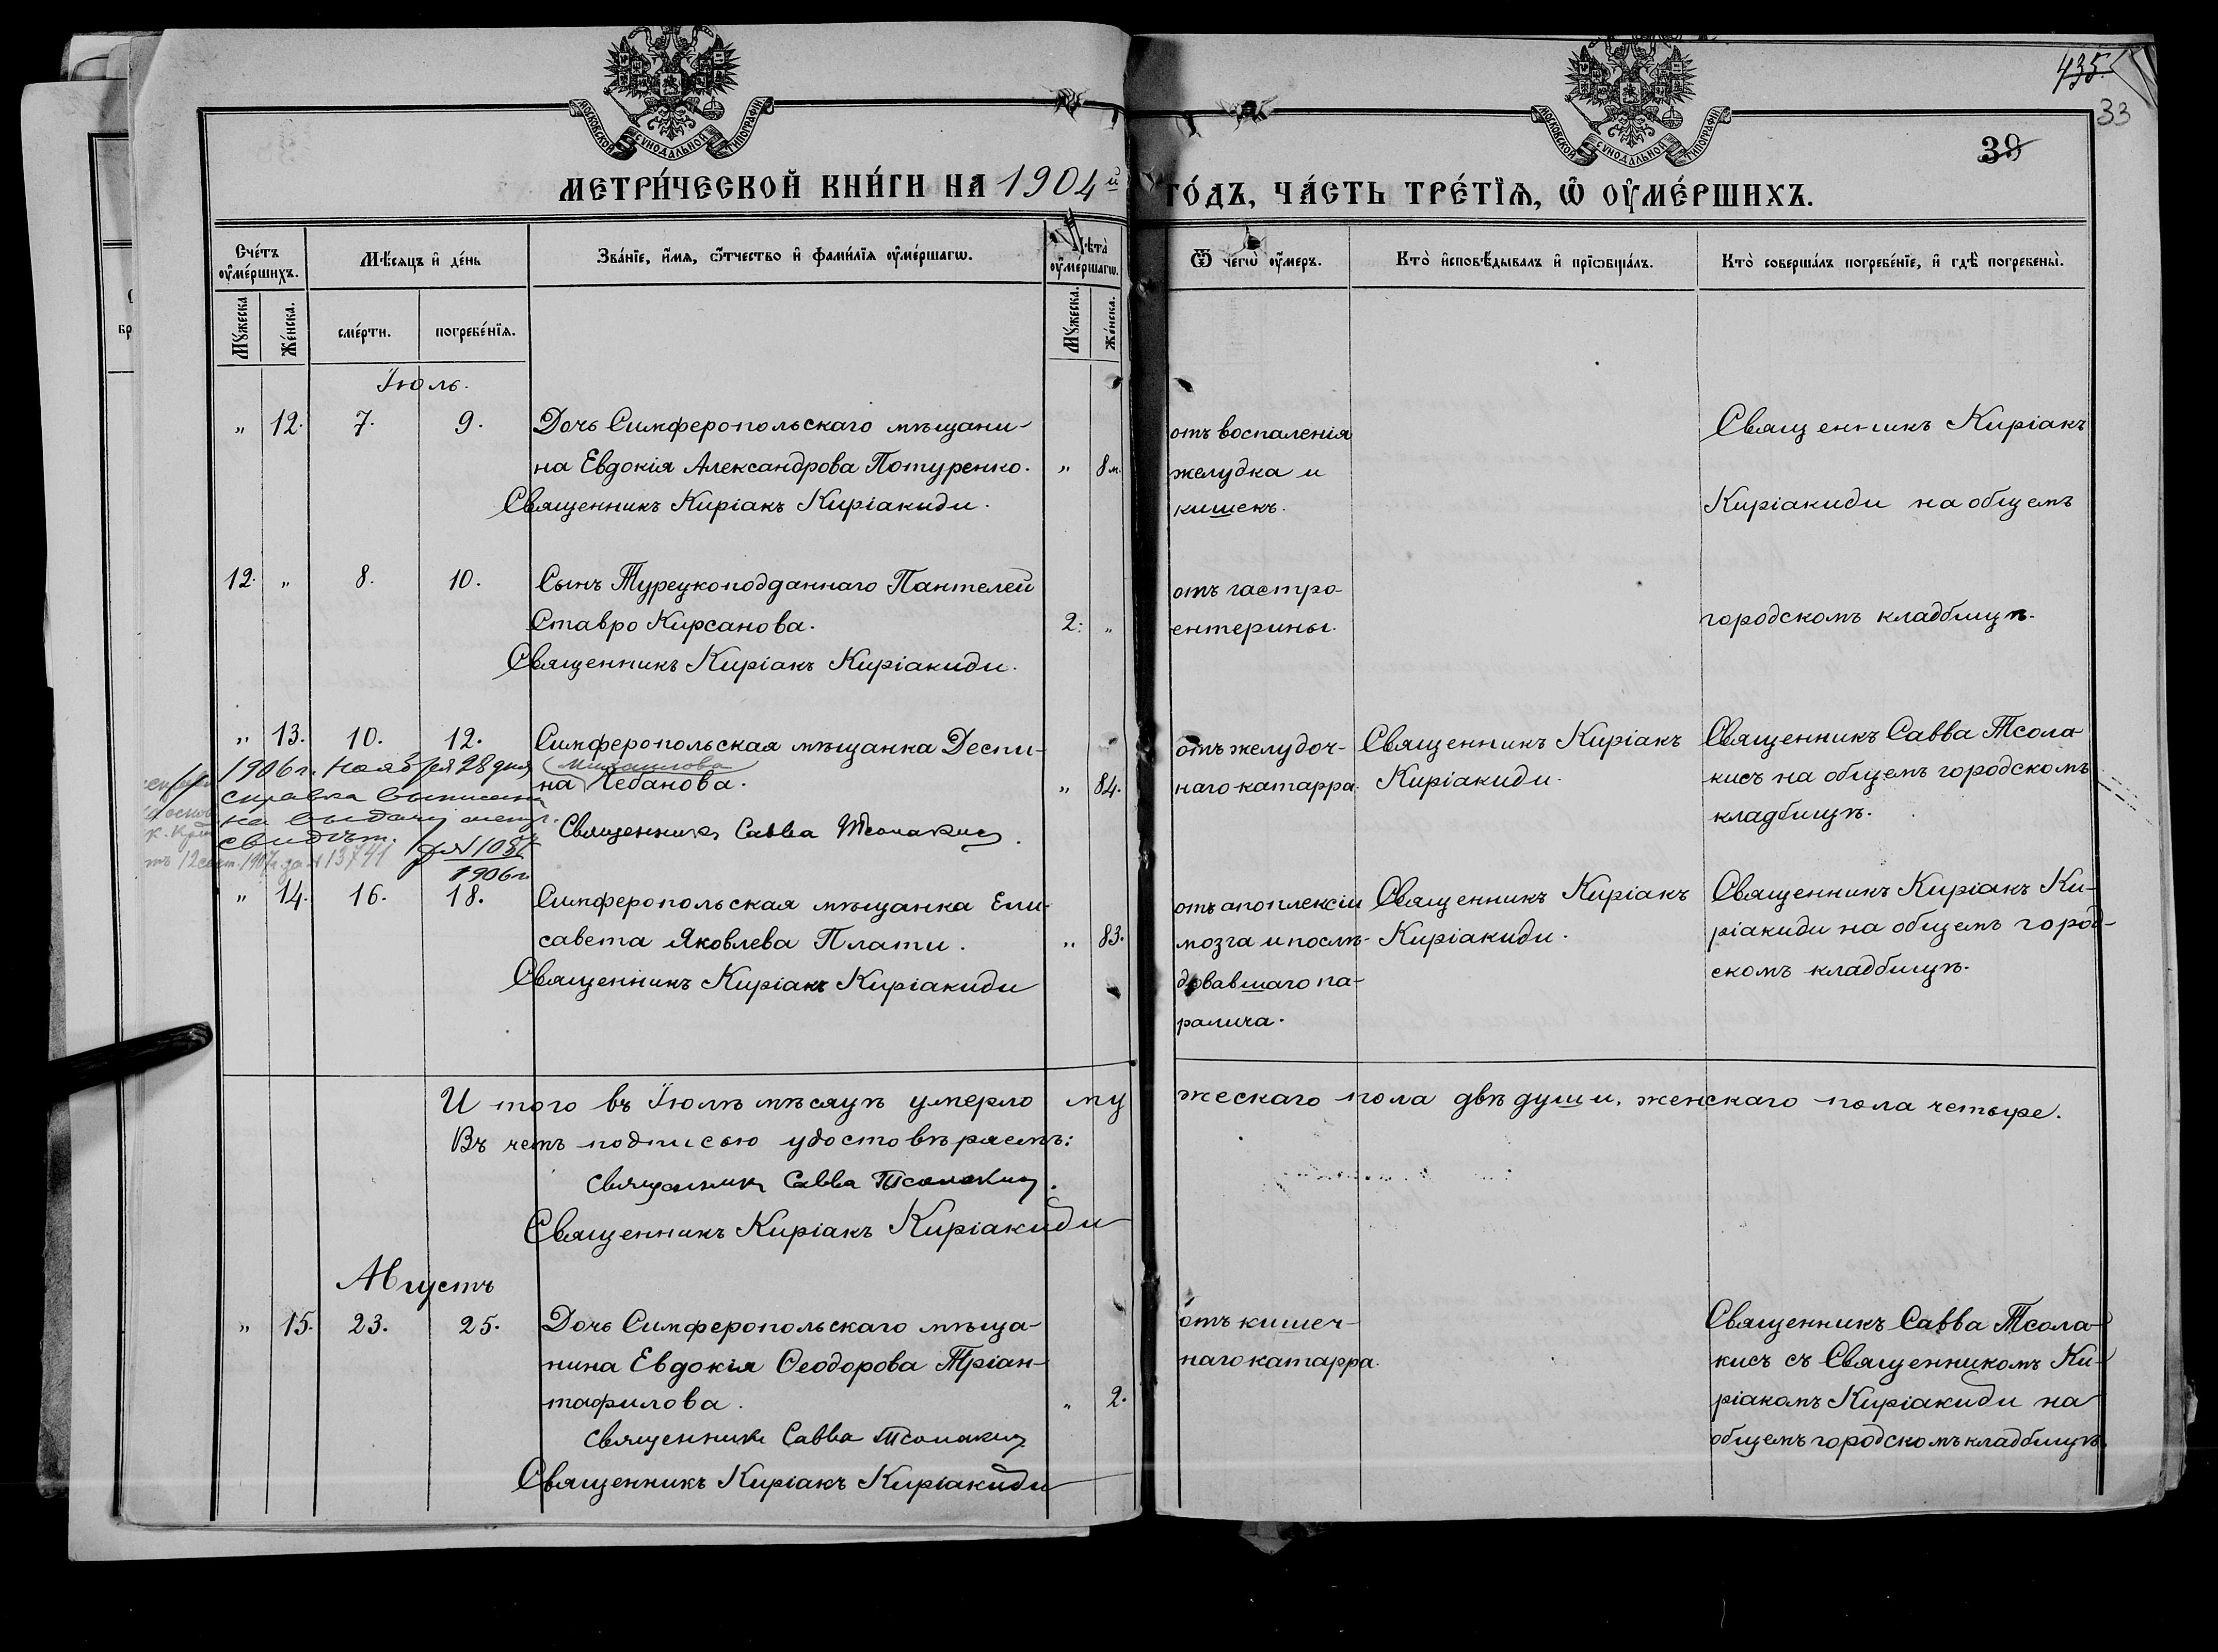 МОСКОВСКОЙ СѴНОДАЛЬНОЙ ТИПОГРАФІИ
МОСКОВСКОЙ СѴНОДАЛЬНОЙ ТИПОГРАФІИ
435.
33
39
МЕТРИ́ЧЕСКОЙ КНИ́ГИ НА 1904й ГО́ДЪ, ЧА́СТЬ ТРЕ́ТЇѦ, Ѡ҆ ОУ҆МЕ́РШИХЪ.
Сче́тъ оу҆ме́ршихъ.
Мѣ́сяцъ и҆ де́нь
Зва́нїе, и҆́мѧ, ѻ҆́тчество и҆ фами́лїѧ оу҆ме́ршагѡ.
Лѣ́та оу҆ме́ршагѡ.
Ѿ чегѡ̀ оу҆́меръ.
Кто̀ и҆сповѣ́дывалъ и҆ прїѡбща́лъ.
Кто̀ соверша́лъ погребе́нїе, и҆ гдѣ̀ погребены̀.
Мꙋ́жеска
Же́нска.
сме́рти.
погребе́нїѧ.
Мꙋ́жеска.
Же́нска.
Іюль.
" 12. 7. 9. Дочь Симферопольскаго мѣщани- отъ воспаленія Священникъ Киріакъ
на Евдокія Александрова Потуренко. " 8 м. желудка и
Священникъ Киріакъ Киріакиди. кишекъ. Киріакиди на общемъ
12. " 8. 10. Сынъ Турецкоподданнаго Пантелей отъ гастро-
Ставро Кирсанова. 2. " ентерины. городскомъ кладбищѣ.
Священникъ Киріакъ Киріакиди.
" 13. 10. 12. Симферопольская мѣщанка Деспи- отъ желудоч- Священникъ Киріакъ Священникъ Савва Тсола-
Михаилова
на Чебанова. " 84. наго катарра. Киріакиди. кисъ на общемъ городскомъ
кладбищѣ.
Священникъ Савва Тсолакисъ.
1906 г. Ноября 28 дня
справка выписана
на выдачу метр.
свидѣт.
1906 г.
12 сент. 1907 г. за № 13741
" 14. 16. 18. Симферопольская мѣщанка Ели- отъ апоплексіи Священникъ Киріакъ Священникъ Киріакъ Ки-
савета Яковлева Плати. " 83. мозга и послѣ- Киріакиди. ріакиди на общемъ город-
Священникъ Киріакъ Киріакиди довавшаго па- скомъ кладбищѣ.
ралича.
И того въ Іюлѣ мѣсяцѣ умерло мужескаго пола двѣ души, женскаго пола четыре.
Въ чемъ подписью удостовѣряемъ:
Священникъ Савва Тсолакисъ.
Священникъ Киріакъ Киріакиди
Августъ
" 15. 23. 25. Дочь Симферопольскаго мѣща- отъ кишеч- Священникъ Савва Тсола-
нина Евдокія Ѳеодорова Тріан- наго катарра. кисъ съ Священникомъ Ки-
тафилова. " 2. ріакомъ Киріакиди на
Священникъ Савва Тсолакисъ общемъ городскомъ кладбищѣ.
Священникъ Киріакъ Киріакиди